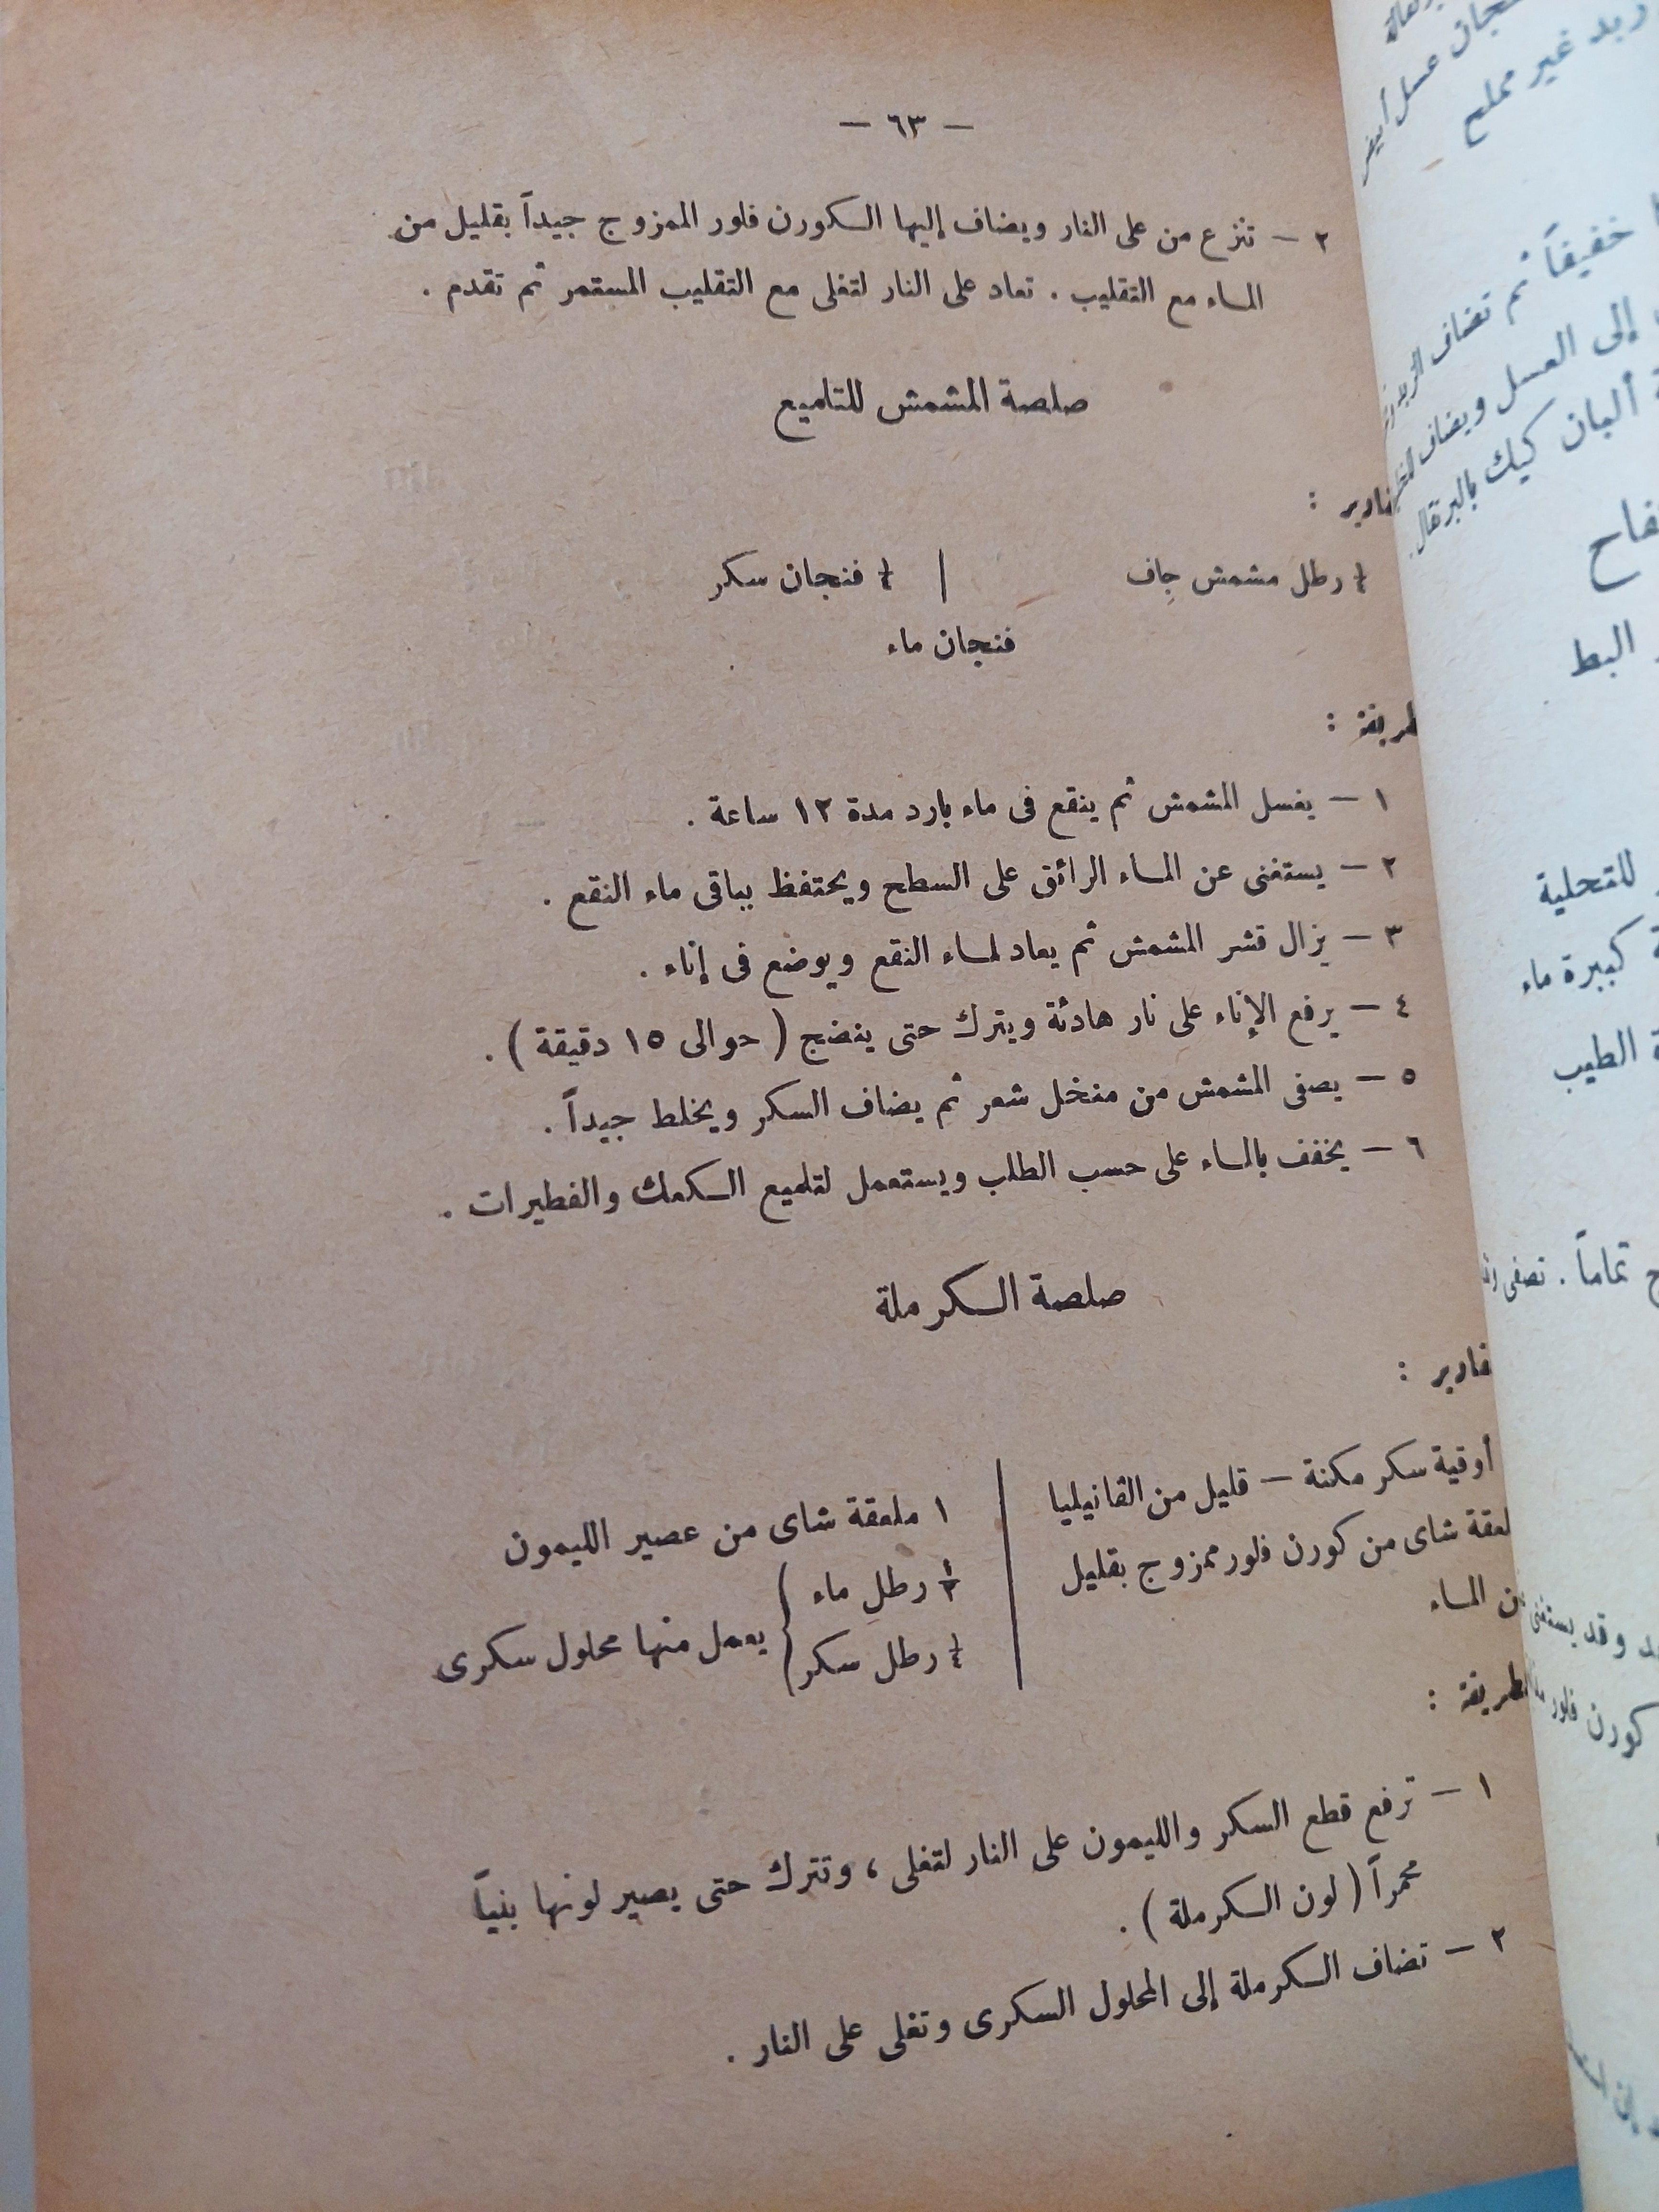 — ٦٣ —
٢ — تنزع من على النار ويضاف إليها الكورن فلور الممزوج جيداً بقليل من
الماء مع التقليب . تعاد على النار لتغلى مع التقليب المستمر ثم تقدم .
صلصة المشمش للتلميع
قادير :
¼ رطل مشمش جاف | ¼ فنجان سكر
فنجان ماء
طريقة :
١ — يغسل المشمش ثم ينقع فى ماء بارد مدة ١٢ ساعة .
٢ — يستغنى عن الماء الرائق على السطح ويحتفظ بباقى ماء النقع .
٣ — يزال قشر المشمش ثم يعاد لماء النقع ويوضع فى إناء .
٤ — يرفع الإناء على نار هادئة ويترك حتى ينضج ( حوالى ١٥ دقيقة ) .
٥ — يصفى المشمش من منخل شعر ثم يضاف السكر ويخلط جيداً .
٦ — يخفف بالماء على حسب الطلب ويستعمل لتلميع الكعك والفطيرات .
صلصة الكرملة
قادير :
أوقية سكر مكنة — قليل من الڤانيليا
لعقة شاى من كورن فلور ممزوج بقليل
من الماء
١ ملعقة شاى من عصير الليمون
½ رطل ماء
¼ رطل سكر
يعمل منها محلول سكرى
الطريقة :
١ — ترفع قطع السكر والليمون على النار لتغلى ، وتترك حتى يصير لونها بنياً
محمراً ( لون الكرملة ) .
٢ — تضاف الكرملة إلى المحلول السكرى وتغلى على النار .
ربد غير مملح
فنجان عسل أبيض
خفيفاً ثم تضاف
إلى العسل ويضاف
ألبان كيك بالبرتقال .
فاح
البط
للتحلية
كبيرة ماء
الطيب
تماماً . تصفى
وقد يستغنى
كورن فلور